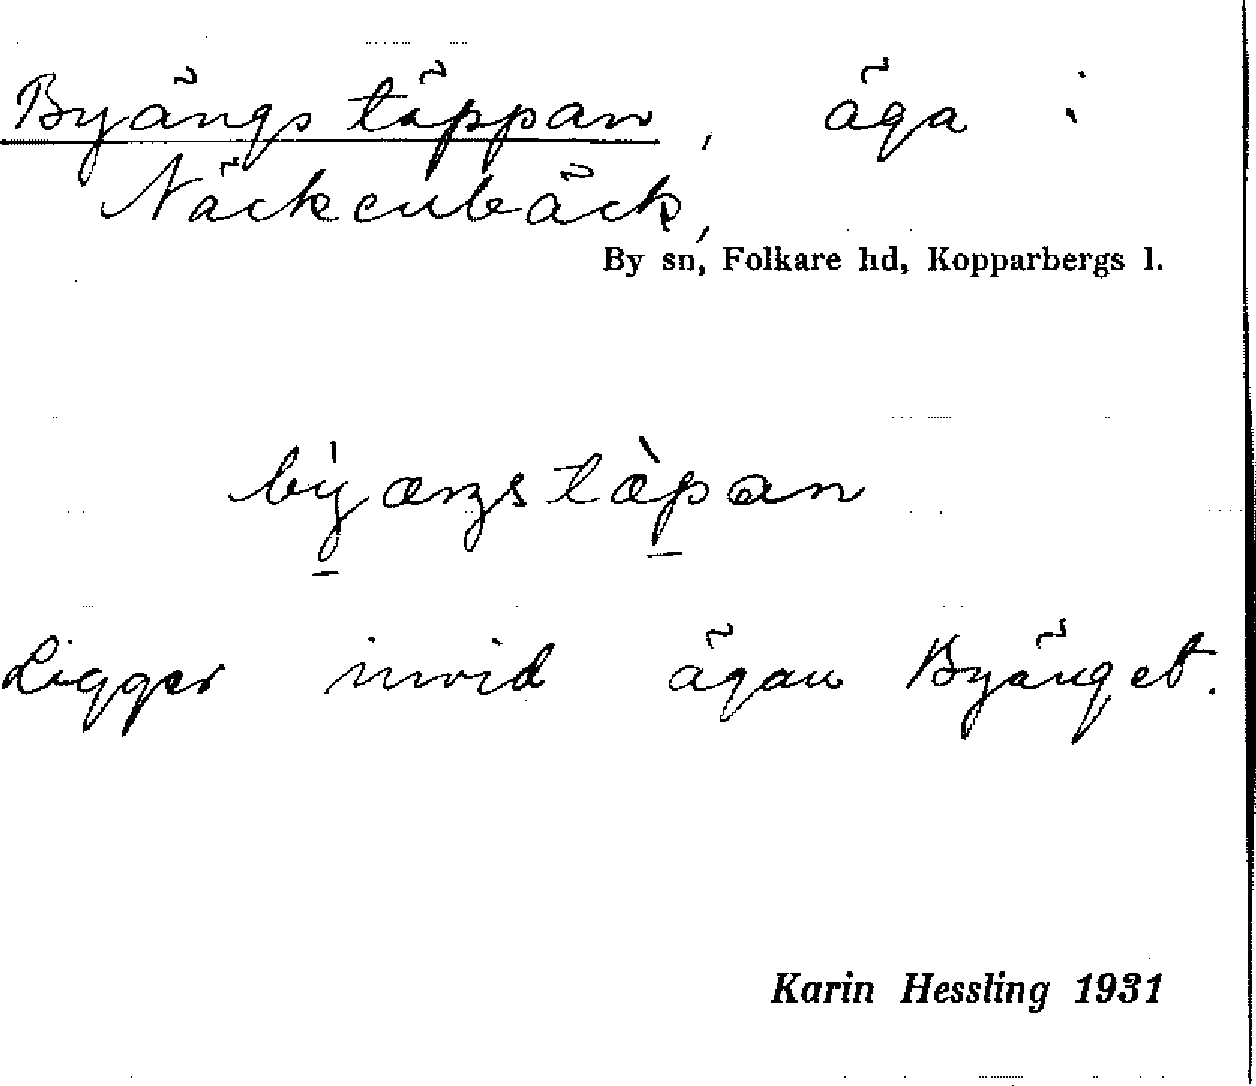 Byängstäppan, äga i
Näckenbäck,
By sn, Folkare hd, Kopparbergs l.
bỳæŋstæ̀pan
Ligger invid ägan Byänget.
Karin Hessling 1931